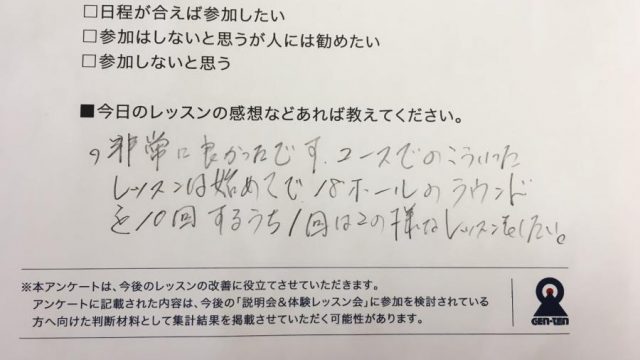 □日程が合えば参加したい
□参加はしないと思うが人には勧めたい
□参加しないと思う
■今日のレッスンの感想などあれば教えてください。
非常に良かったです.コースでのこういった
レッスンは始めてで18ホールのラウンド
を10回するうち1回はこの様なレッスンをしたい。
※本アンケートは、今後のレッスンの改善に役立てさせていただきます。
アンケートに記載された内容は、今後の「説明会&体験レッスン会」に参加を検討されている
方へ向けた判断材料として集計結果を掲載させていただく可能性があります。
GEN-TEN